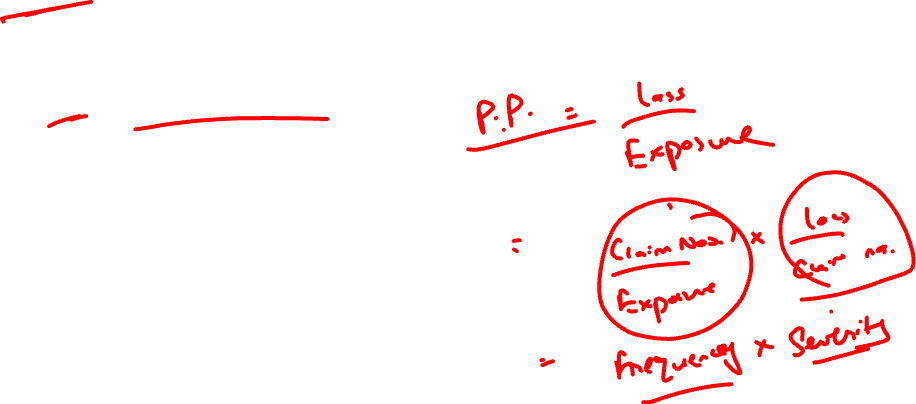 P.P. = Loss
Exposure
= Claim Nos. × Loss
Exposure Claim nos.
= Frequency × Severity